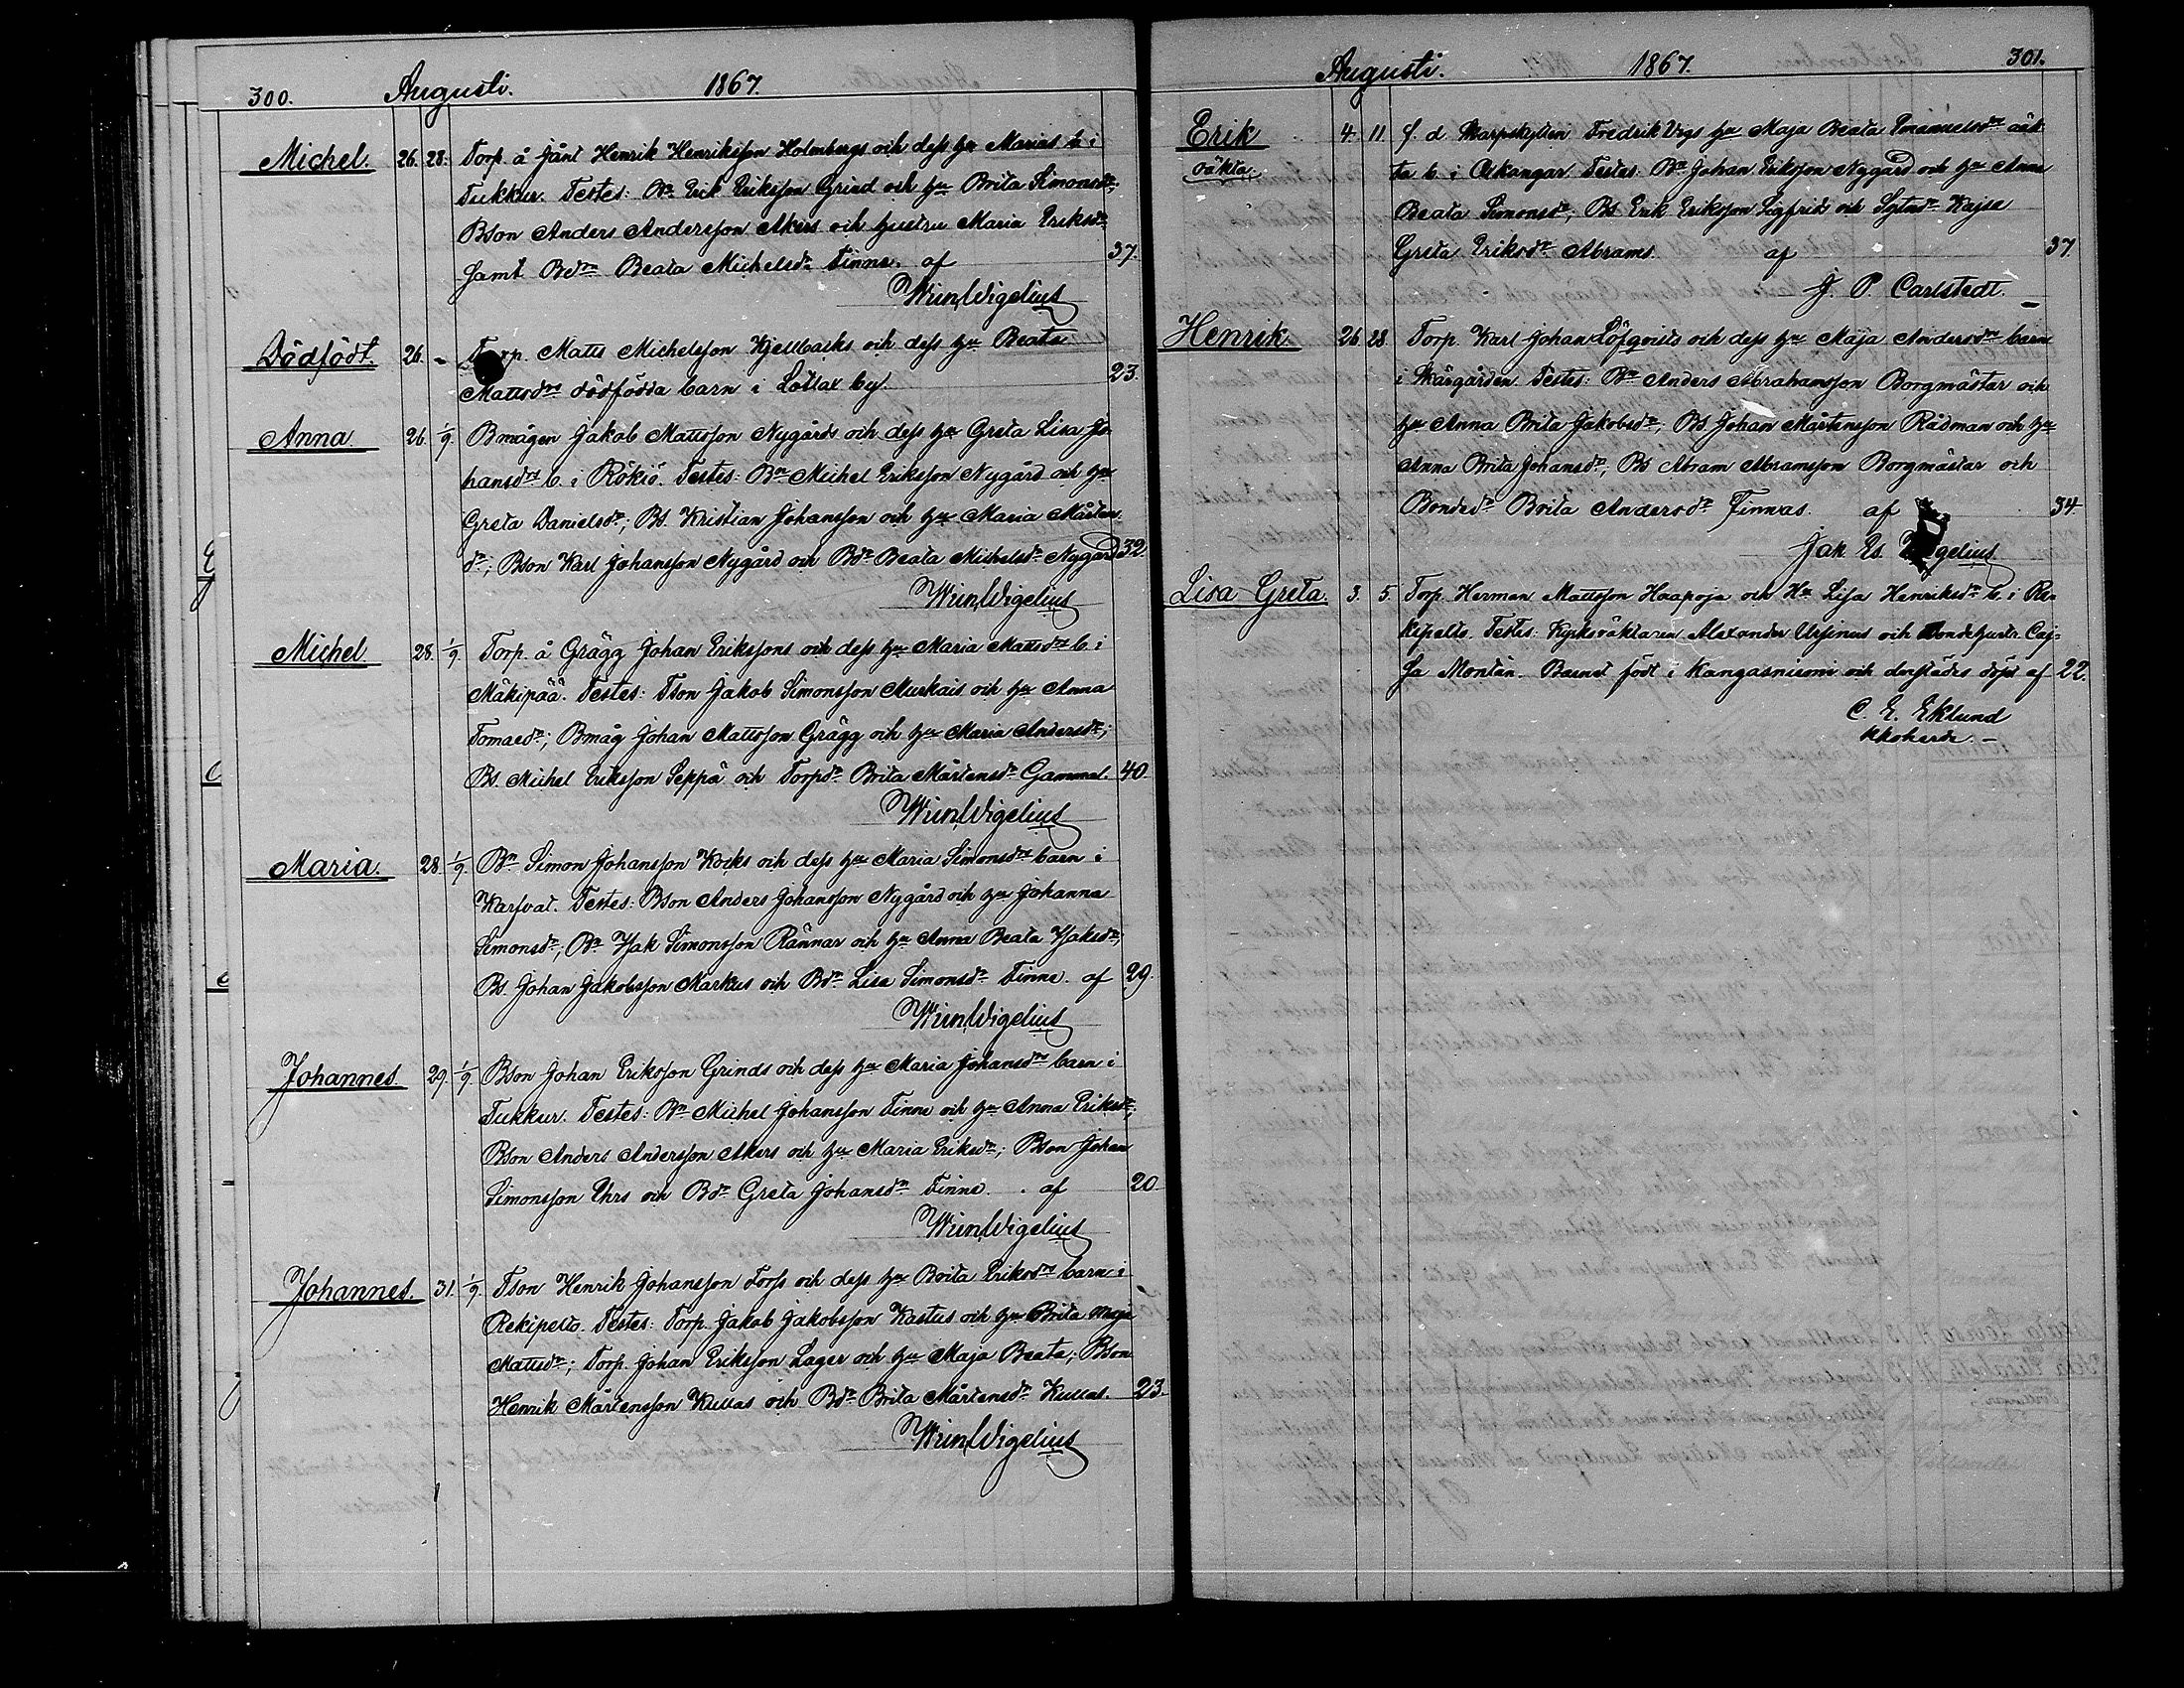 300. Augusti. 1867.
Michel. 26. 28. Torp. å Jånt Henrik Henriksson Holmbergs och dess hu Marias b. i
Tukkur. Testes: Bn Erik Eriksson Grind och hu Brita Simonsdr;
Bson Anders Andersson Akers och hustru Maria Eriksdr
samt Bdn Beata Michelsdr Finne. af 37.
Wm Wigelius
Dödfödt. 26. - Torp. Matts Michelsson Kjellbacks och dess hu Beata
Mattsdrs dödfödda barn i Lålax by. 23.
Anna 26. 1/9. Bmågen Jakob Mattsson Nygårds och dess hu Greta Lisa Jo-
hansdrs b. i Rökiö. Testes: Bn Michel Eriksson Nygård och hu
Greta Danielsdr; Bs. Kristian Johansson och hu Maria Mårtens
dr; Bson Karl Johansson Nygård och Bdr Beata Michelsdr Nygård 32.
Wm Wigelius
Michel 28. 1/9. Torp. å Grägg Johan Erikssons och dess hu Maria Mattsdrs b. i
Mäkipää. Testes: Tson Jakob Simonsson Murkais och hu Anna
Tomasdr; Bmåg Johan Mattsson Grägg och hu Maria Andersdr;
Bs. Michel Eriksson Seppä och Torpdr Brita Mårtensdr Gammal. 40.
Wm Wigelius
Maria. 28. 1/9. Bn Simon Johansson Kocks och dess hu Maria Simonsdrs barn i
Karfvat. Testes: Bson Anders Johansson Nygård och hu Johanna
Simonsdr; Bn Isak Simonsson Rännar och hu Anna Beata Isaksdr;
Bs. Johan Jakobsson Markus och Bdr Lisa Simonsdr Finne. af 29.
Wm Wigelius
Johannes 29. 1/9. Bson Johan Eriksson Grinds och dess hu Maria Johansdrs barn i
Tukkur. Testes: Bn Michel Johansson Finne och hu Anna Eriksdr;
Bson Anders Andersson Akers och hu Maria Eriksdr; Bson Johan
Simonsson Uhrs och Bdr Greta Johansdr Finne. af 20.
Wm Wigelius
Johannes. 31. 1/9. Tson Henrik Johansson Forss och dess hu Brita Eriksdrs barn i
Rekipelto. Testes: Torp. Jakob Jakobsson Kastus och hu Brita Maja
Mattsdr; Torp. Johan Eriksson Lager och hu Maja Beata; Bson
Henrik Mårtensson Kullas och Bdr Brita Mårtensdr Kullas. 23.
Wm Wigelius
Augusti. 1867. 301.
Erik 4. 11. f. d. Skarpskytten Fredrik Vegs hu Maja Beata Emanuelsdrs oäk-
oäkta. ta b. i Oskangar. Testes: Bn Johan Eriksson Nygård och hu Anna
Beata Simonsdr; Bs Erik Eriksson Sigfrids och Sytndr Kajsa
Greta Eriksdr Abrams. af 37.
J. P. Carlstedt.
Henrik. 26. 28. Torp. Karl Johan Löfqvists och dess hu Maja Andersdrs barn
i Skärgården. Testes: Bn Anders Abrahamsson Borgmästar och
hu Anna Brita Jakobsdr; Bs Johan Mårtensson Rådman och hu
Anna Brita Johansdr; Bs Abram Abramsson Borgmästar och
Bondedr Brita Andersdr Finnas. af 34.
Jak Es. Wigelius
Lisa Greta. 3. 5. Torp. Herman Mattsson Haapoja och Hu Lisa Henriksdrs b. i Re-
kipelto. Testes: Kyrkväktaren Alexander Ursinus och Bondehustr. Caj-
sa Montin. Barnet född i Kangasniemi och derstädes döpt af 22.
C. E. Eklund
Kkoherde.